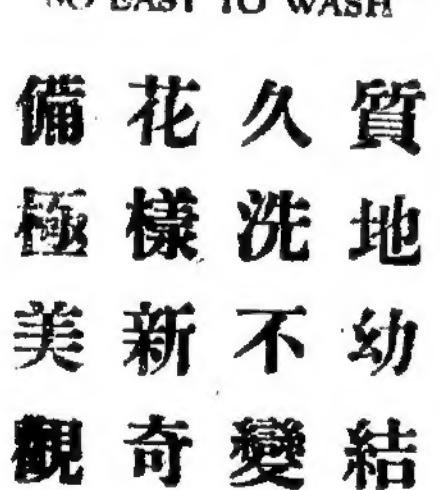 NO EASY TO WASH
質地幼結
久洗不變
花樣新奇
備極美觀